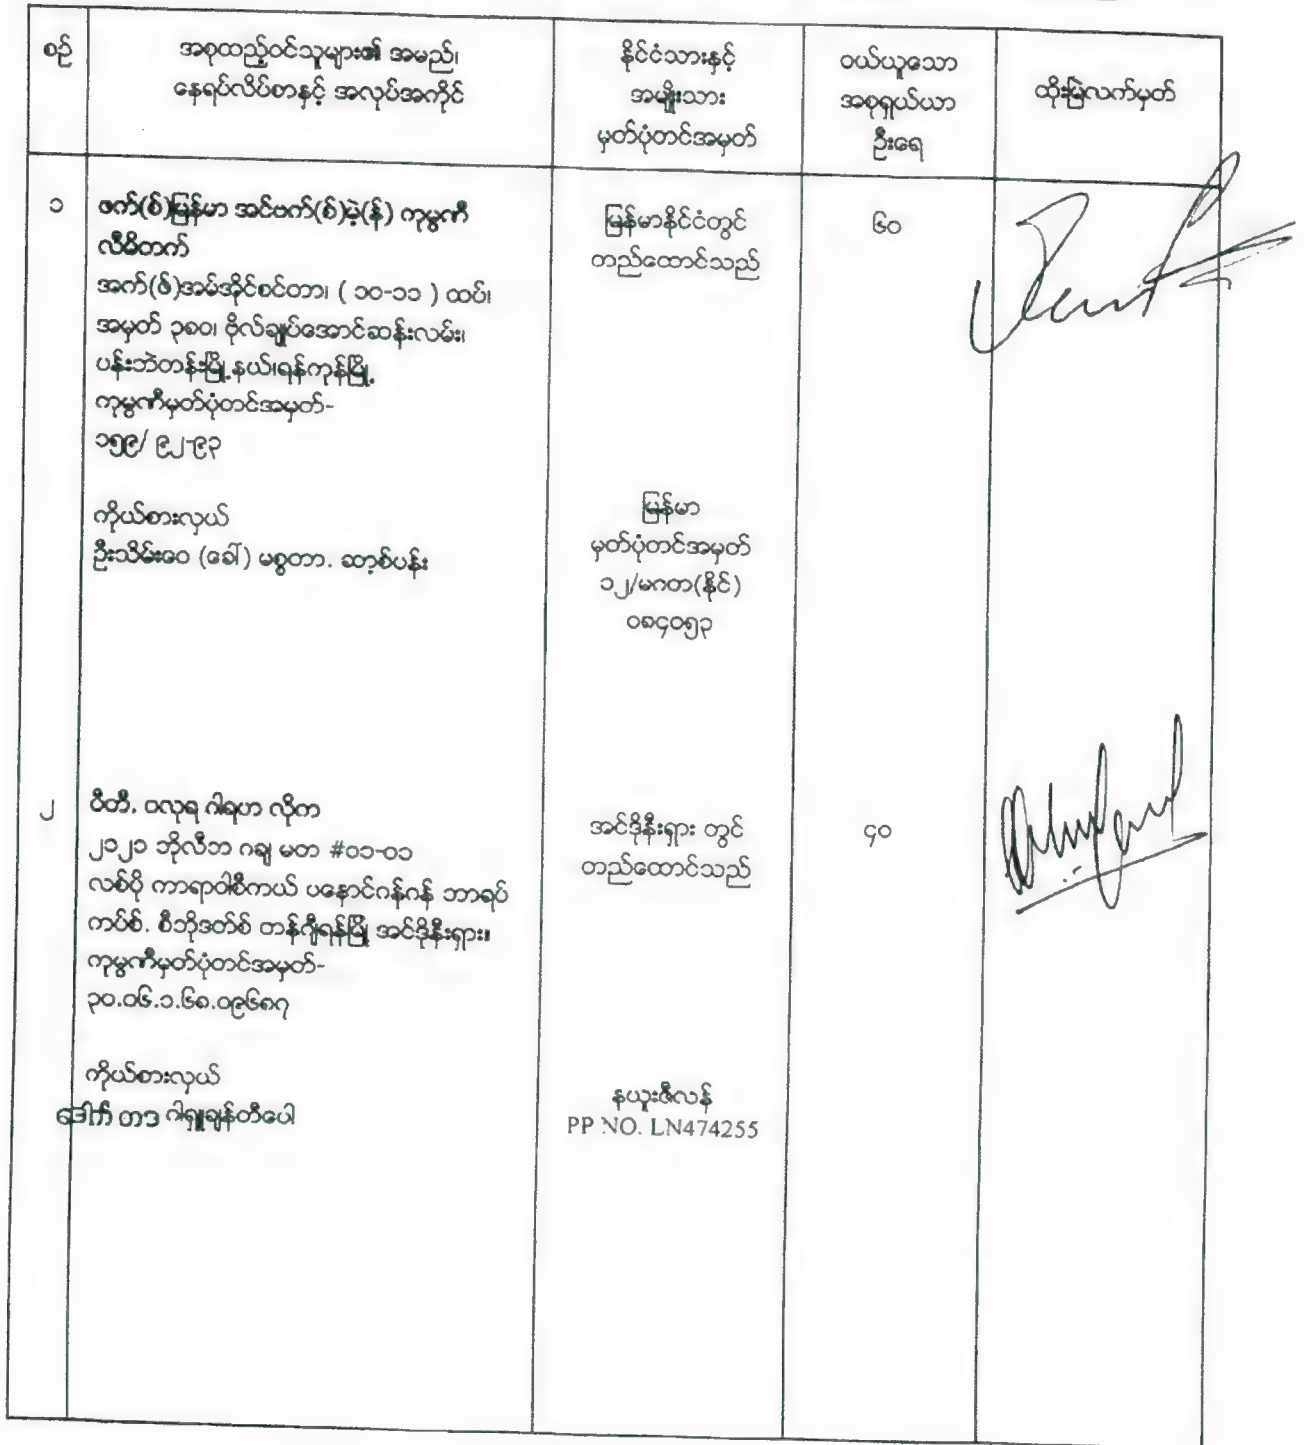 စဉ်
အစုထည့်ဝင်သူများ၏ အမည်၊
နေရပ်လိပ်စာနှင့် အလုပ်အကိုင်
နိုင်ငံသားနှင့်
အမျိုးသား
မှတ်ပုံတင်အမှတ်
ဝယ်ယူသော
အစုရှယ်ယာ
ဦးရေ
ထိုးမြဲလက်မှတ်
၁
ဖက်(စ်)မြန်မာ အင်ဗက်(စ်)မဲ့(န်) ကုမ္ပဏီ
လီမိတက်
အက်(ဖ်)အမ်အိုင်စင်တာ၊ ( ၁၀-၁၁ ) ထပ်၊
အမှတ် ၃၈၀၊ ဗိုလ်ချုပ်အောင်ဆန်းလမ်း၊
ပန်းဘဲတန်းမြို့နယ်၊ရန်ကုန်မြို့
ကုမ္ပဏီမှတ်ပုံတင်အမှတ်-
၁၅၉/ ၉၂-၉၃
မြန်မာနိုင်ငံတွင်
တည်ထောင်သည်
၆၀
ကိုယ်စားလှယ်
ဦးသိမ်းဝေ (ခေါ်) မစ္စတာ. ဆာ့စ်ပန်း
မြန်မာ
မှတ်ပုံတင်အမှတ်
၁၂/မဂတ(နိုင်)
၀၈၄၀၅၃
၂
ပီတီ. ဝလုရ ဂါရဟ လိုက
၂၁၂၁ ဘိုလီဘ ဂချ မတ #၀၁-၀၁
လစ်ပို ကာရာဝါစီကယ် ပနောင်ဂန်ဂန် ဘာရပ်
ကပ်စ်. စီဘိုဒတ်စ် တန်ဂျီရန်မြို့ အင်ဒိုနီးရှား။
ကုမ္ပဏီမှတ်ပုံတင်အမှတ်-
၃၀.၀၆.၁.၆၈.၀၉၆၈၇
အင်ဒိုနီးရှား တွင်
တည်ထောင်သည်
၄၀
ကိုယ်စားလှယ်
ဒေါက် တဒ ဂါရှူချန်တီပေါ
နယူးဇီလန်
PP NO. LN474255